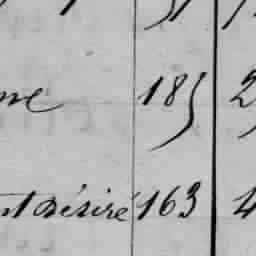 ne 185 2
nt Désiré 163 4